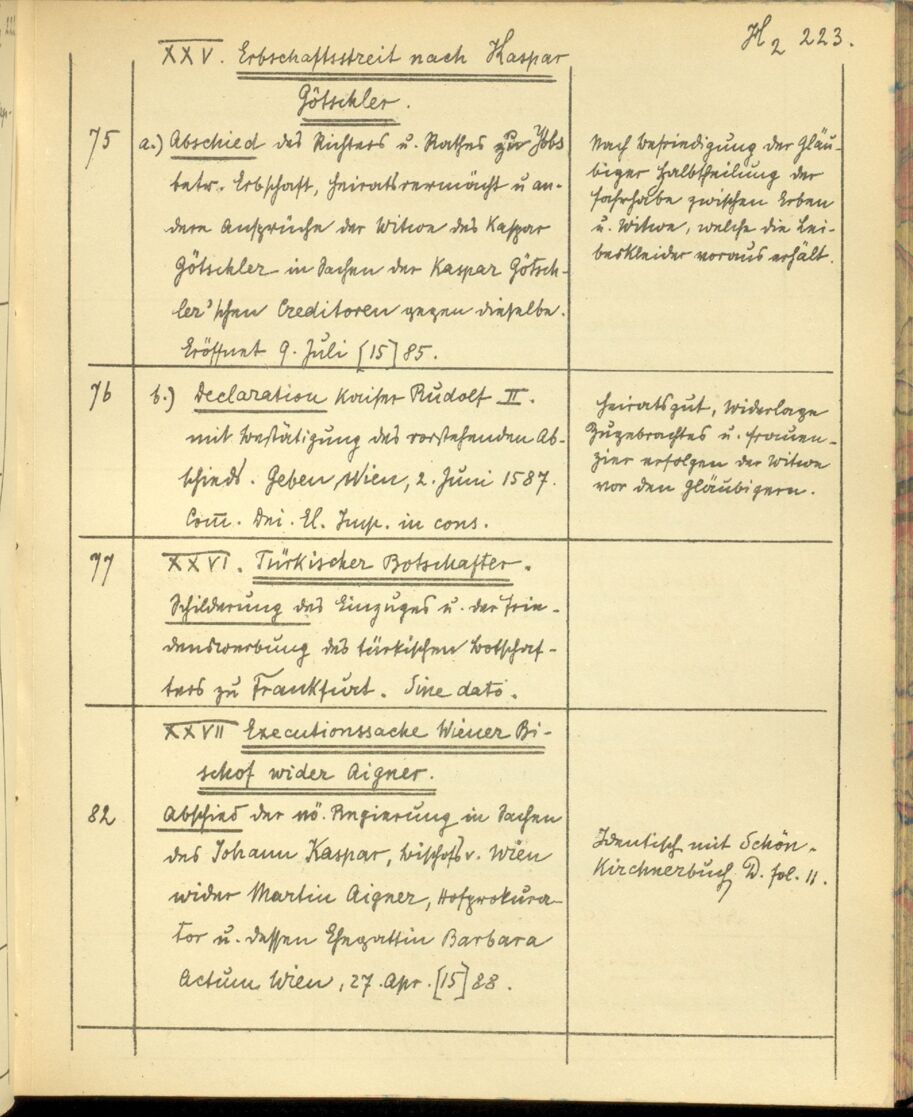 H2 223.
XXV. Erbschaftsstreit nach Kaspar
Götschler.
75 a.) Abschied des Richters u. Rathes zur Ybbs
betr. Erbschaft, Heiratsvermächt u an-
dere Ansprüche der Witwe des Kaspar
Götschler in Sachen der Kaspar Götsch-
ler'schen Creditoren gegen dieselbe.
Eröffnet 9. Juli [15]85.
Nach Befriedigung der Gläu-
biger Halbtheilung der
Fahrhabe zwischen Erben
u. Witwe, welche die Lei-
beskleider voraus erhält.
76 b.) Declaration Kaiser Rudolf II.
mit Bestätigung des vorstehenden Ab-
schieds. Geben, Wien, 2. Juni 1587.
Com̅. Dni. El. Imp. in cons.
Heiratsgut, Widerlage
Zugebrachtes u. Frauen-
zier erfolgen der Witwe
vor den Gläubigern.
77 XXVI. Türkischer Botschafter.
Schilderung des Einzuges u. der Frie-
denswerbung des türkischen Botschaf-
ters zu Frankfurt. Sine dato.
XXVII Executionssache Wiener Bi-
schof wider Aigner.
82 Abschied der nö. Regierung in Sachen
des Johann Kaspar, Bischofs v. Wien
wider Martin Aigner, Hofprokura-
tor u. dessen Ehegattin Barbara
Actum Wien, 27. Apr. [15]88.
Identisch mit Schön-
Kirchnerbuch D. fol. 11.